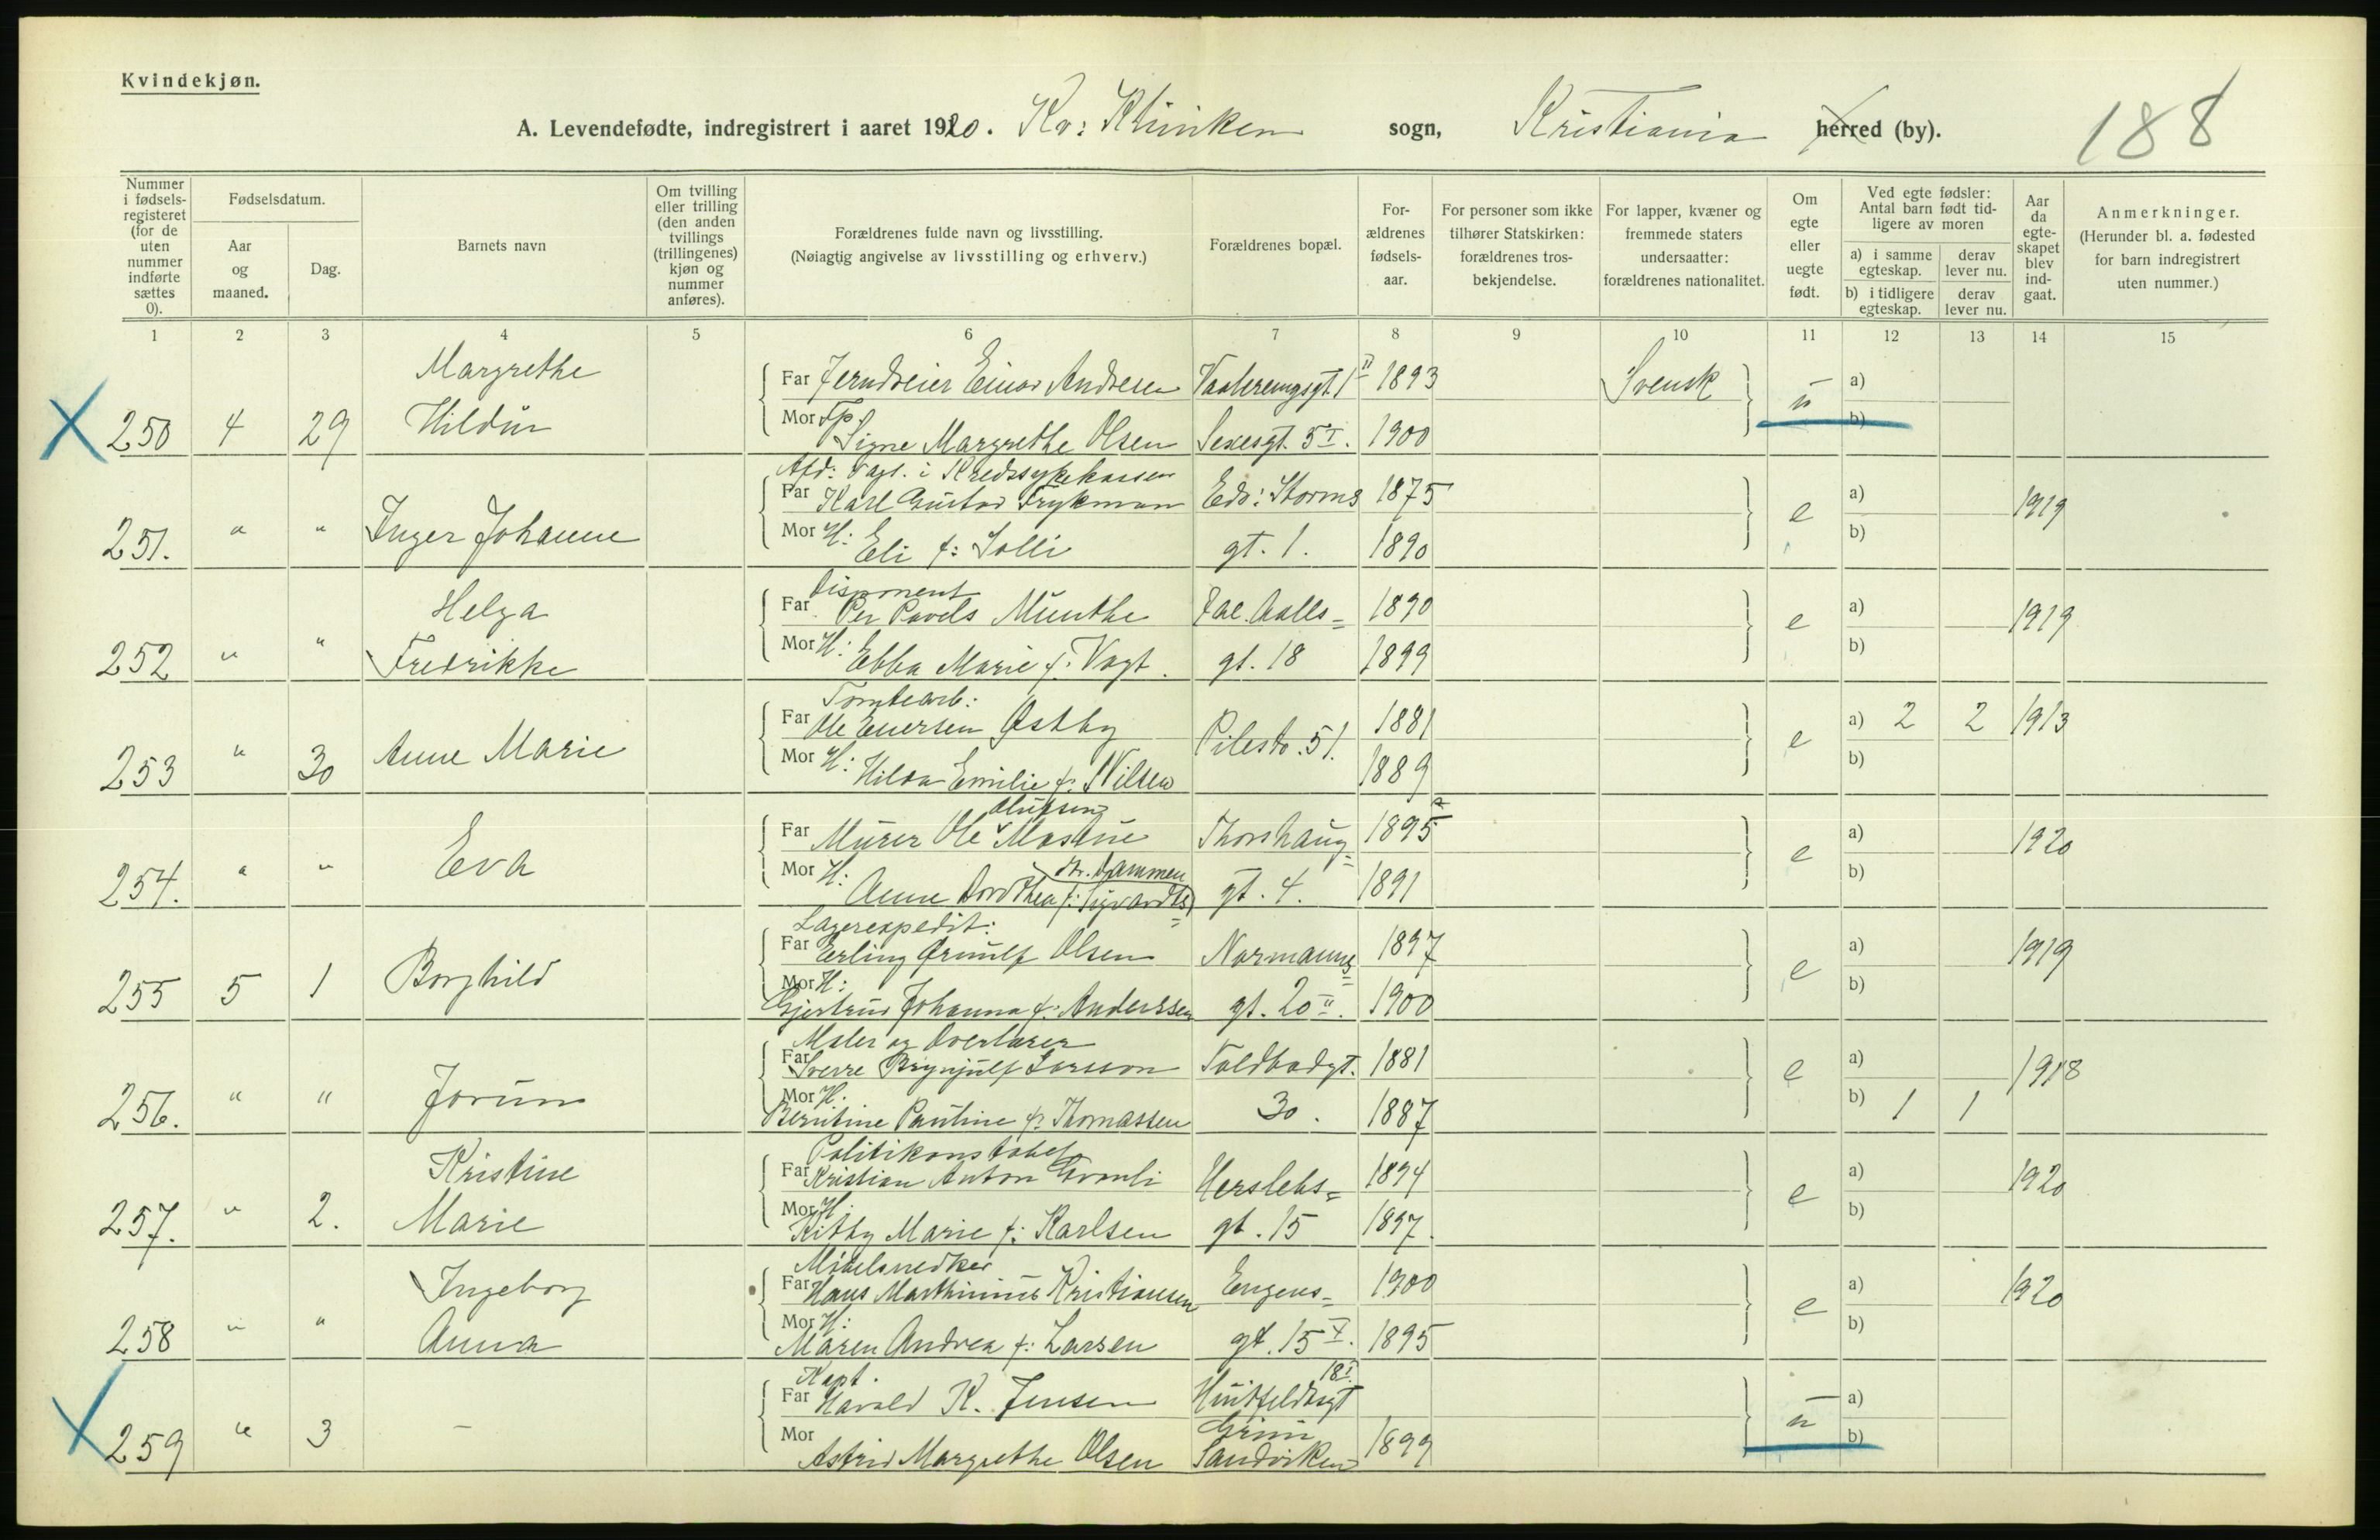 Kvindekjøn.
A. Levendefødte, indregistrert i aaret 1920. Kv: Klinikken sogn, Kristiania herred (by).
188
Nummer i fødsels-registeret (for de uten nummer indførte sættes 0).
Fødselsdatum.
Aar og maaned.
Dag.
Barnets navn
Om tvilling eller trilling (den anden tvillings (trillingenes) kjøn og nummer anføres).
Forældrenes fulde navn og livsstilling.
(Nøiagtig angivelse av livsstilling og erhverv.)
Forældrenes bopæl.
For-ældrenes fødsels-aar.
For personer som ikke tilhører Statskirken: forældrenes tros-bekjendelse.
For lapper, kvæner og fremmede staters undersaatter: forældrenes nationalitet.
Om egte eller uegte født.
Ved egte fødsler: Antal barn født tid-ligere av moren
a) i samme egteskap. derav lever nu.
b) i tidligere egteskap. derav lever nu.
Aar da egte-skapet blev ind-gaat.
Anmerkninger.
(Herunder bl. a. fødested for barn indregistrert uten nummer.)
1 2 3 4 5 6 7 8 9 10 11 12 13 14 15
Margrethe
Far Jerndreier Einar Andresen Vaalerenggt. 1 II 1893 Svensk a)
250 4 29 Hildur ū b)
Mor Fp. Signe Margrethe Olsen Sexesgt. 5 I. 1900
Afd: Fagl. i Kredssykekassen
Far Karl Gustav Frykman Edv: Storms 1875 a)
251. " " Inger Johanne e 1919
Mor H: Eli f: Solli gt. 1. 1890 b)
Disponent
Helga Far Per Pavels Munthe Jac. Aalls= 1890 a)
252 " " Fredrikke e 1919
Mor H: Ebba Marie f: Vogt. gt. 18 1899 b)
Tomtearb:
Far Ole Enersen Østby 1881 a) 2 2 1913
253 " 30 Anne Marie Pilestr. 51. e
Mor H: Hilda Emilie f: Nilsen 1889 b)
Olufsen
Far Murer Ole Mastue Thorshaug= 1895 a)
254. " " Eva e 1920
Mor H: Anne Dorothea f: Sigvardts= gt. 4. 1891 b)
Lagerexpedit:
Far Erling Ørnulf Olsen Normanns= 1897 a)
255 5 1 Borghild e 1919
Mor H: Gjertrud Johanna f: Anderssen gt. 20 II. 1900 b)
Maler og Overlærer
Far Sverre Brynjulf Larsson Toldbodgt. 1881 a)
256. " " Jorun e 1918
Mor H. Berntine Pauline f: Thomassen 30. 1887 b) 1 1
Politikonstabel
Kristine Far Kristian Anton Herslebs= 1894 a)
257. " 2. Marie e 1920
Mor H. Kitty Marie f: Karlsen gt. 15 1897. b)
Møbelsnedker
Ingeborg Far Hans Marthinius Kristiansen Engens= 1900 a)
258 " " Anna e 1920
Mor H: Maren Andrea f: Larsen gt. 15 V. 1895 b)
Kapt. 18 I.
Far Harald K. Jensen Huitfeldtsgt a)
259 " 3 — ū b)
Mor Astrid Margrethe Olsen Sandviken 1899